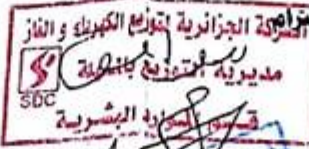 الشركة الجزائرية لتوزيع الكهرباء و الغاز
مديرية التوزيع
SDC
قسم الموارد البشرية